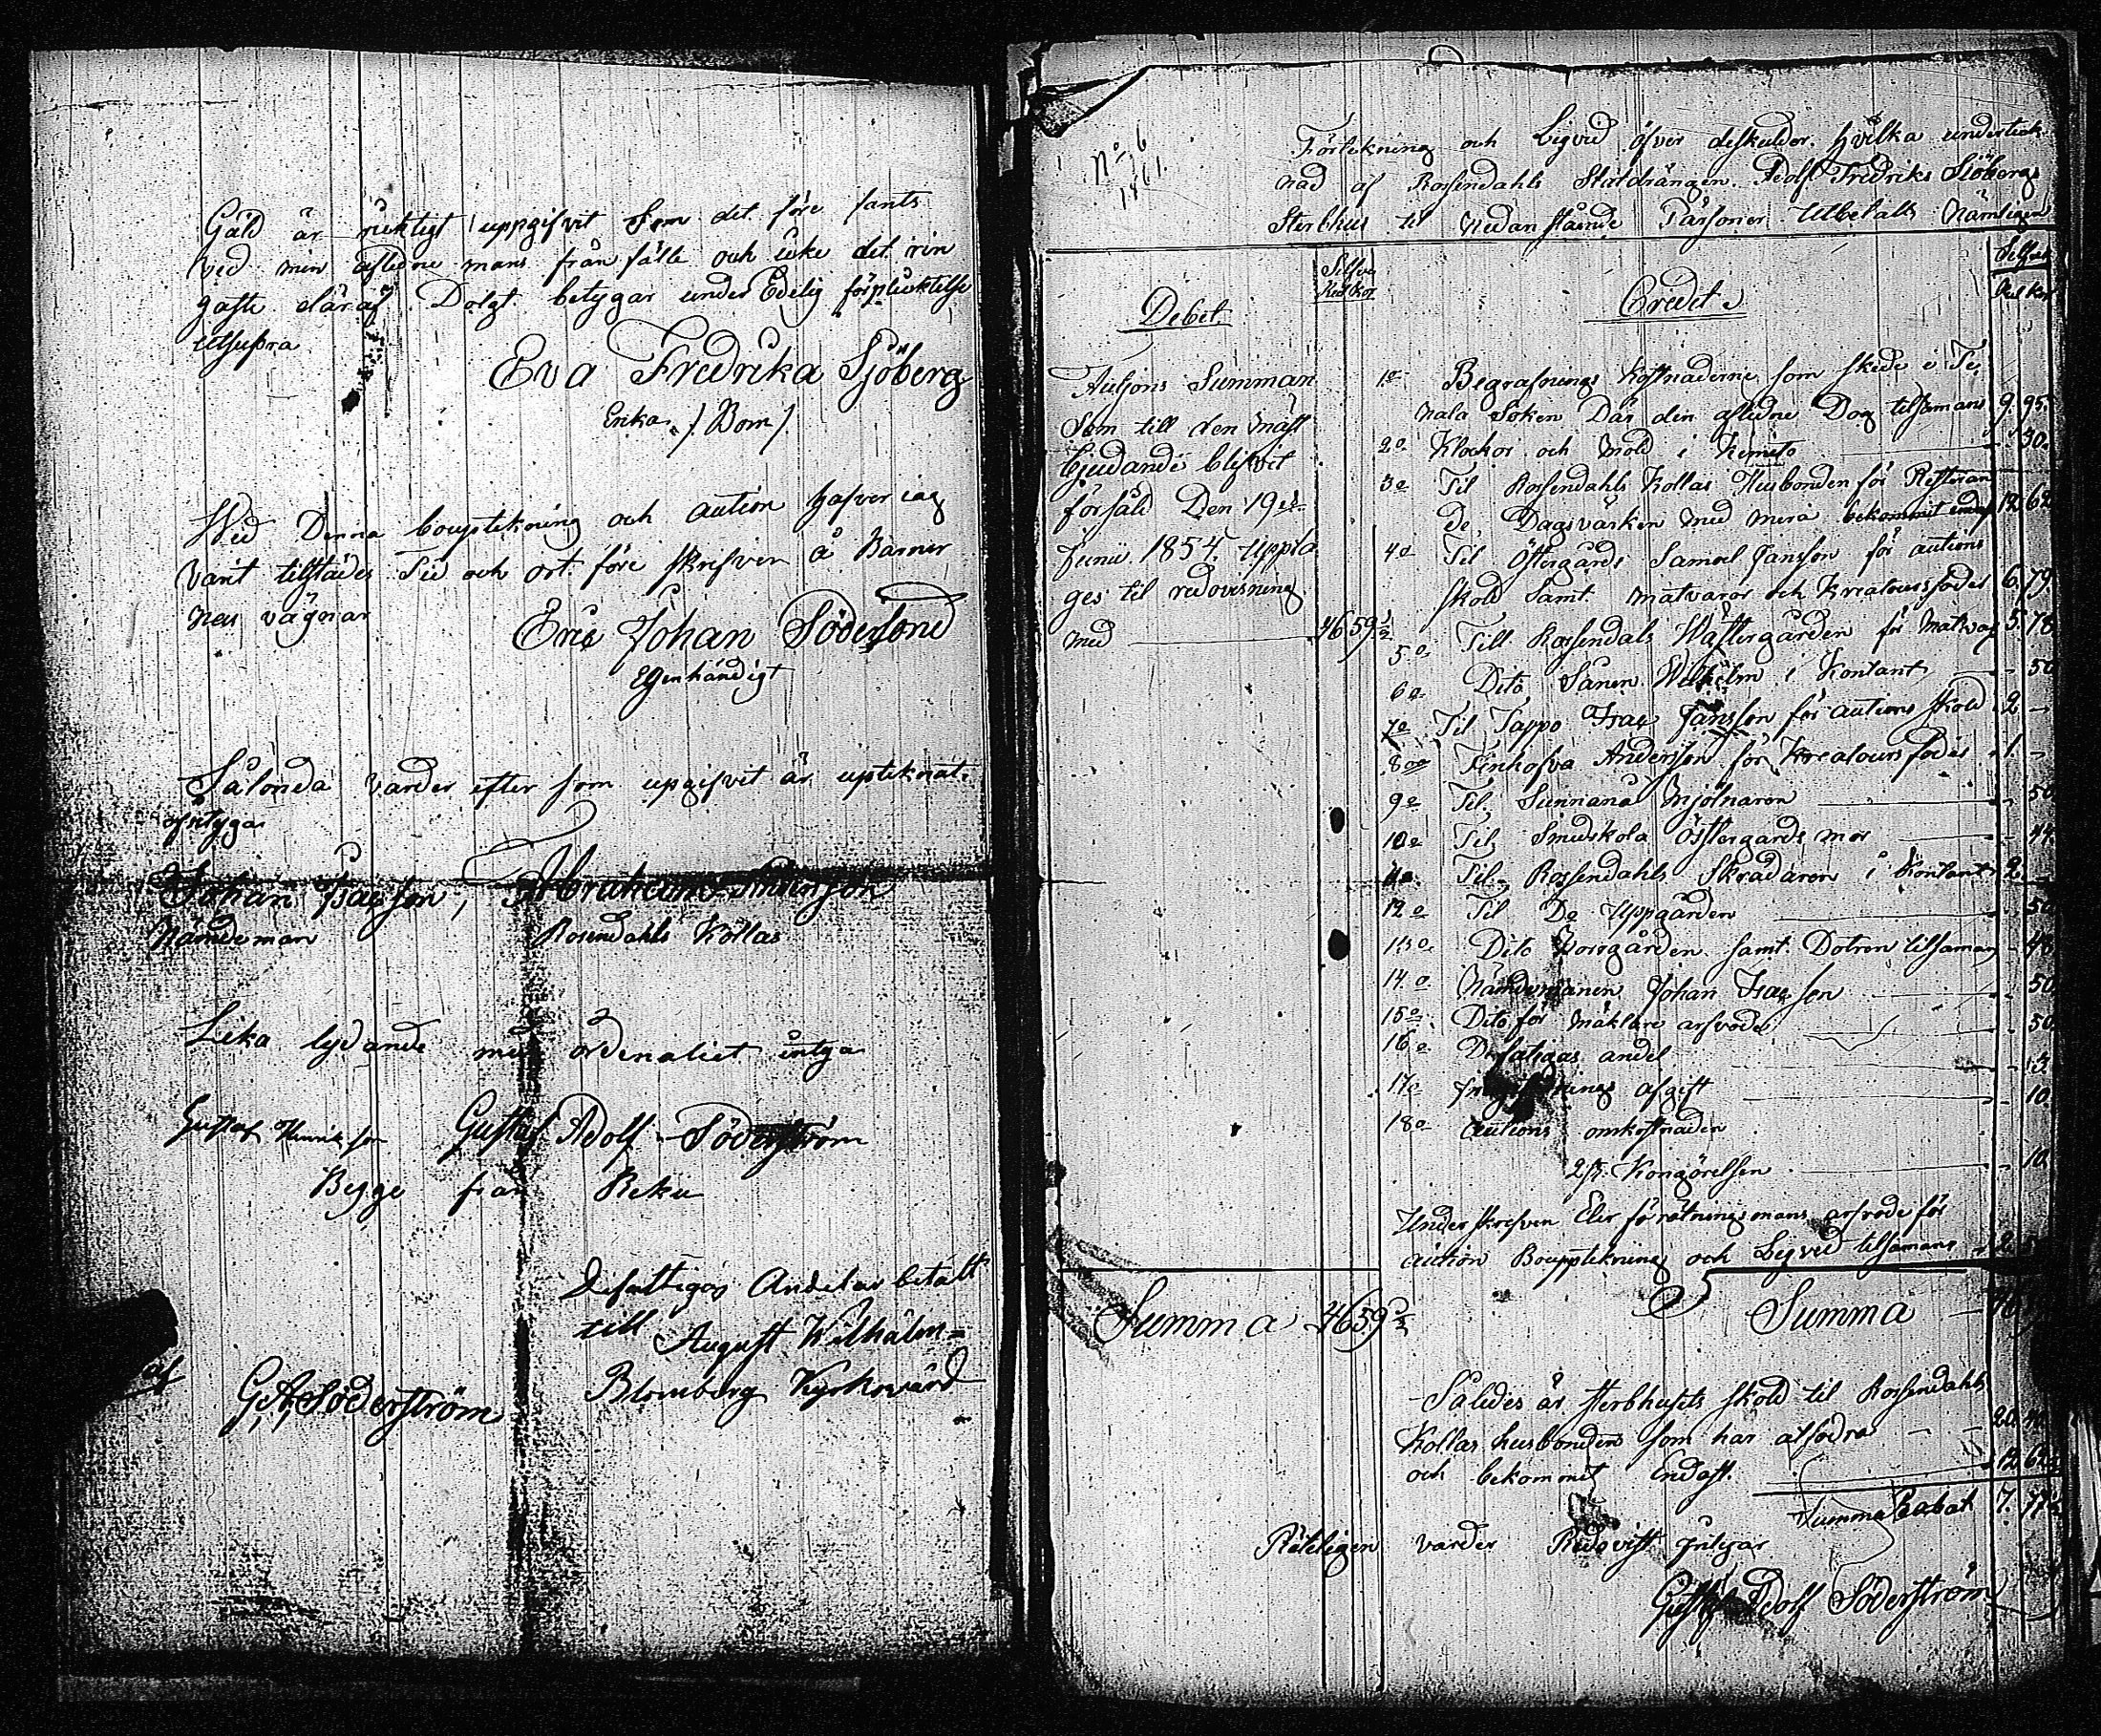 Gäld är ricktigt uppgifvit Som det före fants
vid min aflidne mans från fälle och icke det rin
gaste däraf Dolgt betygar under Edelig förplicktelse
utsupra
Eva Fredrika Sjöberg
Enka /: Bom /
Wid Denna bouptekning och aution hafver iag
varit tilstädes Tid och ort före skrifven å Barner
nes vägnar
Eric Johan Söderlond
Egenhändigt
Sålonda varder efter som upgifvit är upteknat
Johan Isacsson, Abraham
Nämdeman Rosendahls Kollas
Lika lydande med ordenaliet intyga
Gustaf Henriksson Gustaf Adolf Söderström
Begge från Reku
Defattigas Andelar betalt
till August Wilhälm=
Blomberg Kyrkovärd
G. A. Söderström
No 6
1861.
Förtekning och Liqvid öfver deskulder hvilka undertek
nad af Rossendahls Statdrängen Adolf Fredriks Sjöbergs
Sterbhus til Nedanstående Pärsoner Utbetalt Nämligen
Silfver
Rub Kop
Debet
Credit
Auljons Summan
Som till den mäst
bjudande blifvit
försåld Den 19de
Junii 1854. Uppta
ges til redovisning
med 46 59 1/2
1o Begrafnings kostnaderne som skede i Te
nala Soken Där den aflidne Dog tilsamans 9. 95.
2o Klockor och mold i Kimito 30.
3o Til Rossendahls Kollas Husbonden för Resteran
de Dagsvärken med mera bekommit endast 12 62
4o Til Östergårds Samoel Jansson för autions
skold Samt matvaror och Kreatoursfoder 6. 79.
5o Till Rosendals Wästergården för Matvar 5. 78
6o Dito Sånen Wilhelm i Kontant 50
7o Til Tappo Isac Jansson för autions skold 2
8o Finhofva Andersson för Kreatours foder 1
9o Til Sunnanå Mjölnaren 50
10o Til Smedskola Östtergårds mor 44
11o Til Rossendahls Skrädaren i Kontant 2
12o Til Do Uppgården 50
13o Dito Norrgården samt Dotren tilsaman 48
14o Nämdemanen Johan Isacsson 50
15o Dito för mäklare arfvode 50
16o Defatigas andel 3
17o afgift 10
18o autions omkostnaden
Kongörelsen 10
Underskrefven Eler förätningsmans arfvode för
aution Bouppteknineg och Liqved tilsamans 2
Summa 46 59 1/2
Summa 46
Således är sterbhusets skold til Rossendahls
Kollas husbonden som har atfodra 20. 40
och bekommit Endast 12 62 1/2
Summa Rabat 7. 77 1/2
Riktigen varder Redovist intygar
Gustaf Adolf Söderström